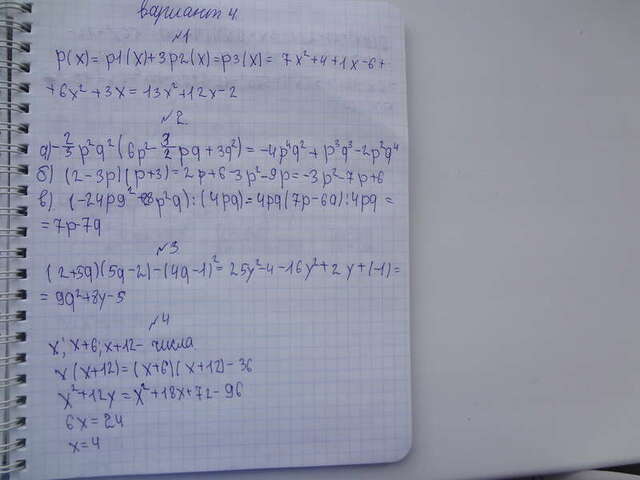 вариант 4.
№1
p(x) = p1(x)+3p2(x)=p3(x)= 7x²+4+1x-6+
+6x²+3x=13x²+12x-2
№2
а)-2/3p²q²(6p²-9/2pq+3q²)=-4p⁴q²+p³q³-2p²q⁴
б) (2-3p)(p+3)=2p+6-3p²-9p=-3p²-7p+6
в) (-24pq²+28p²q):(4pq)=4pq(7p-6q):4pq=
=7p-7q
№3
(2+5q)(5q-2)-(4q-1)²=25y²-4-16y²+2y+(-1)=
=9q²+8y-5
№4
x; x+6; x+12- числа.
x(x+12)=(x+6)(x+12)-36
x²+12x=x²+18x+72-96
6x=24
x=4